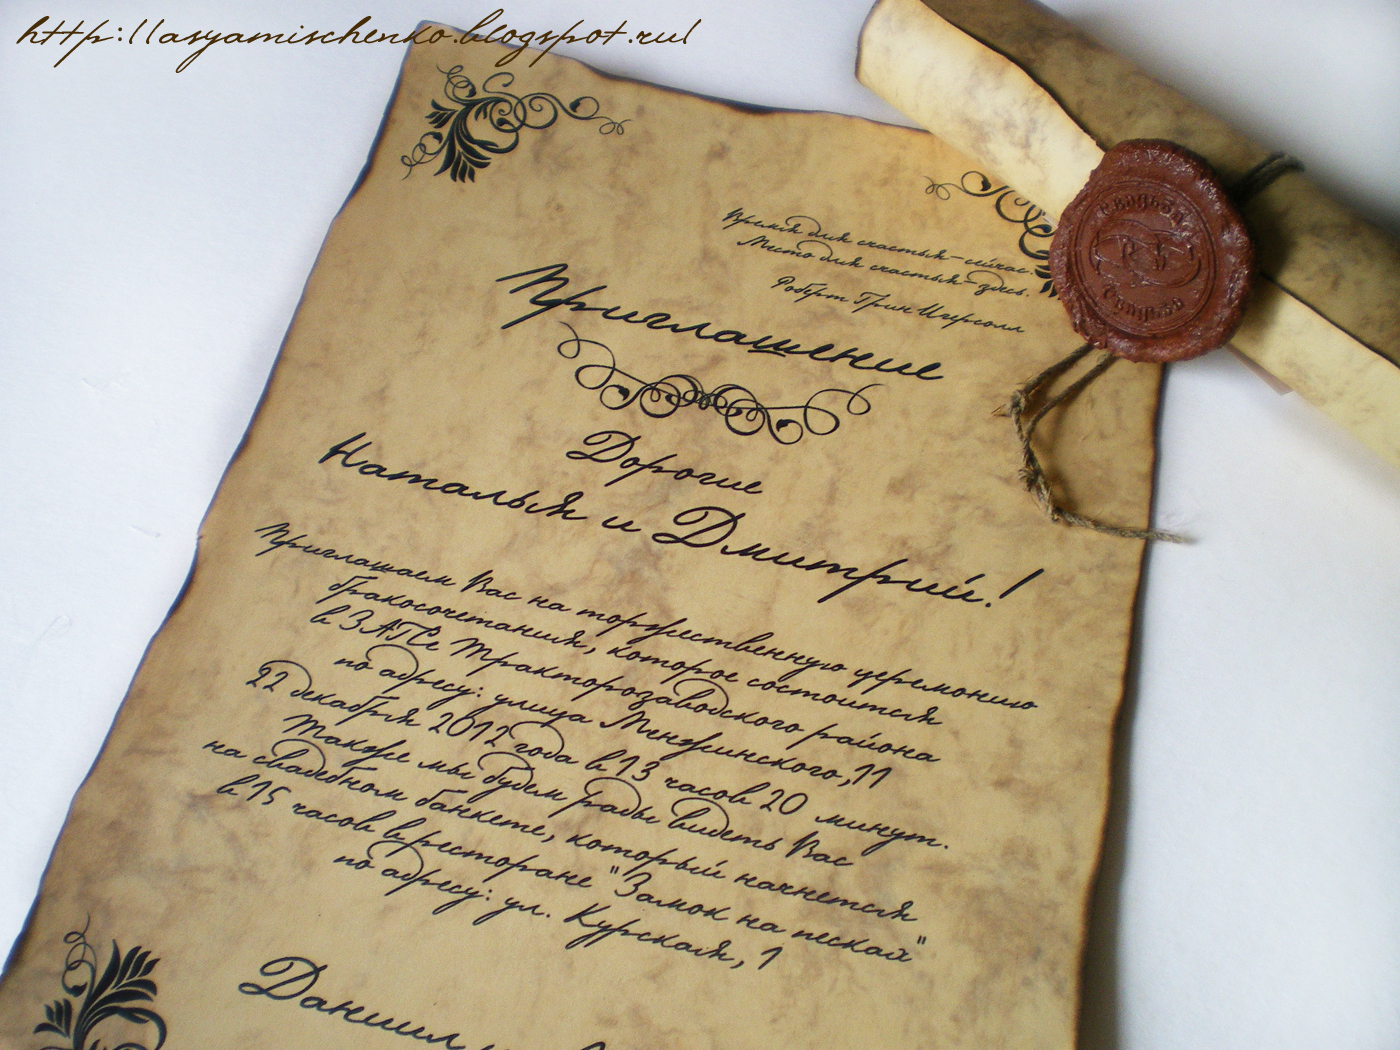 http://asyamischenko.blogspot.ru/
Время для счастья - сейчас.
Место для счастья - здесь.
Роберт Грин Ингерсолл
Приглашение
Дорогие
Наталья и Дмитрий!
Приглашаем Вас на торжественную церемонию
бракосочетания, которое состоится
в ЗАГСе Тракторозаводского района
по адресу: улица Менжинского,11
22 декабря 2012 года в 13 часов 20 минут.
Также мы будем рады видеть Вас
на свадебном банкете, который начнется
в 15 часов в ресторане "Замок на песках"
по адресу: ул. Курская, 1
Даниил и